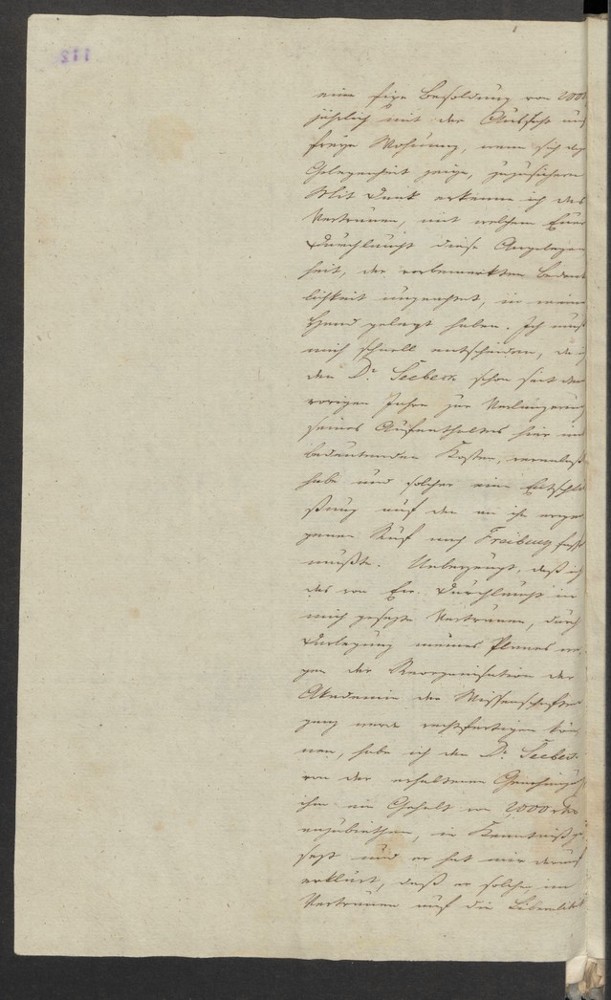 112
eine fixe Besoldung von 2000
jährlich mit der Aussicht auf
freye Wohnung, wenn sich dazu
Gelegenheit zeige, zuzusichern
Mit Dank erkenne ich das
Vertrauen, mit welchem Euer
Durchlaucht diese Angelegen
heit, der vorbemerkten Bedenk
lichkeit ungeachtet, in meine
Hand gelegt haben. Ich muß
mich schnell entscheiden, da ich
den Dr. Seebeck schon seit dem
vorigen Jahre zur Verlängerung
seines Aufenthaltes hier mit
bedeutenden Kosten, veranlaßt
habe und solcher eine Entschlie
ßung auf den an ihn ergan
genen Ruf nach Freiburg fassen
mußte. Ueberzeugt, daß ich
das von Ew. Durchlaucht in
mich gesetzte Vertrauen, durch
Darlegung meines Planes we
gen der Reorganisation der
Akademie der Wissenschaften
ganz werde rechtfertigen kön
nen, habe ich den Dr. Seebeck
von der erhaltenen Genehmigung
ihm ein Gehalt von 2,000 rthr
anzubiethen, in Kenntniß ge
setzt und er hat mir darauf
erklärt, daß er solches im
Vertrauen auf die Liberalität